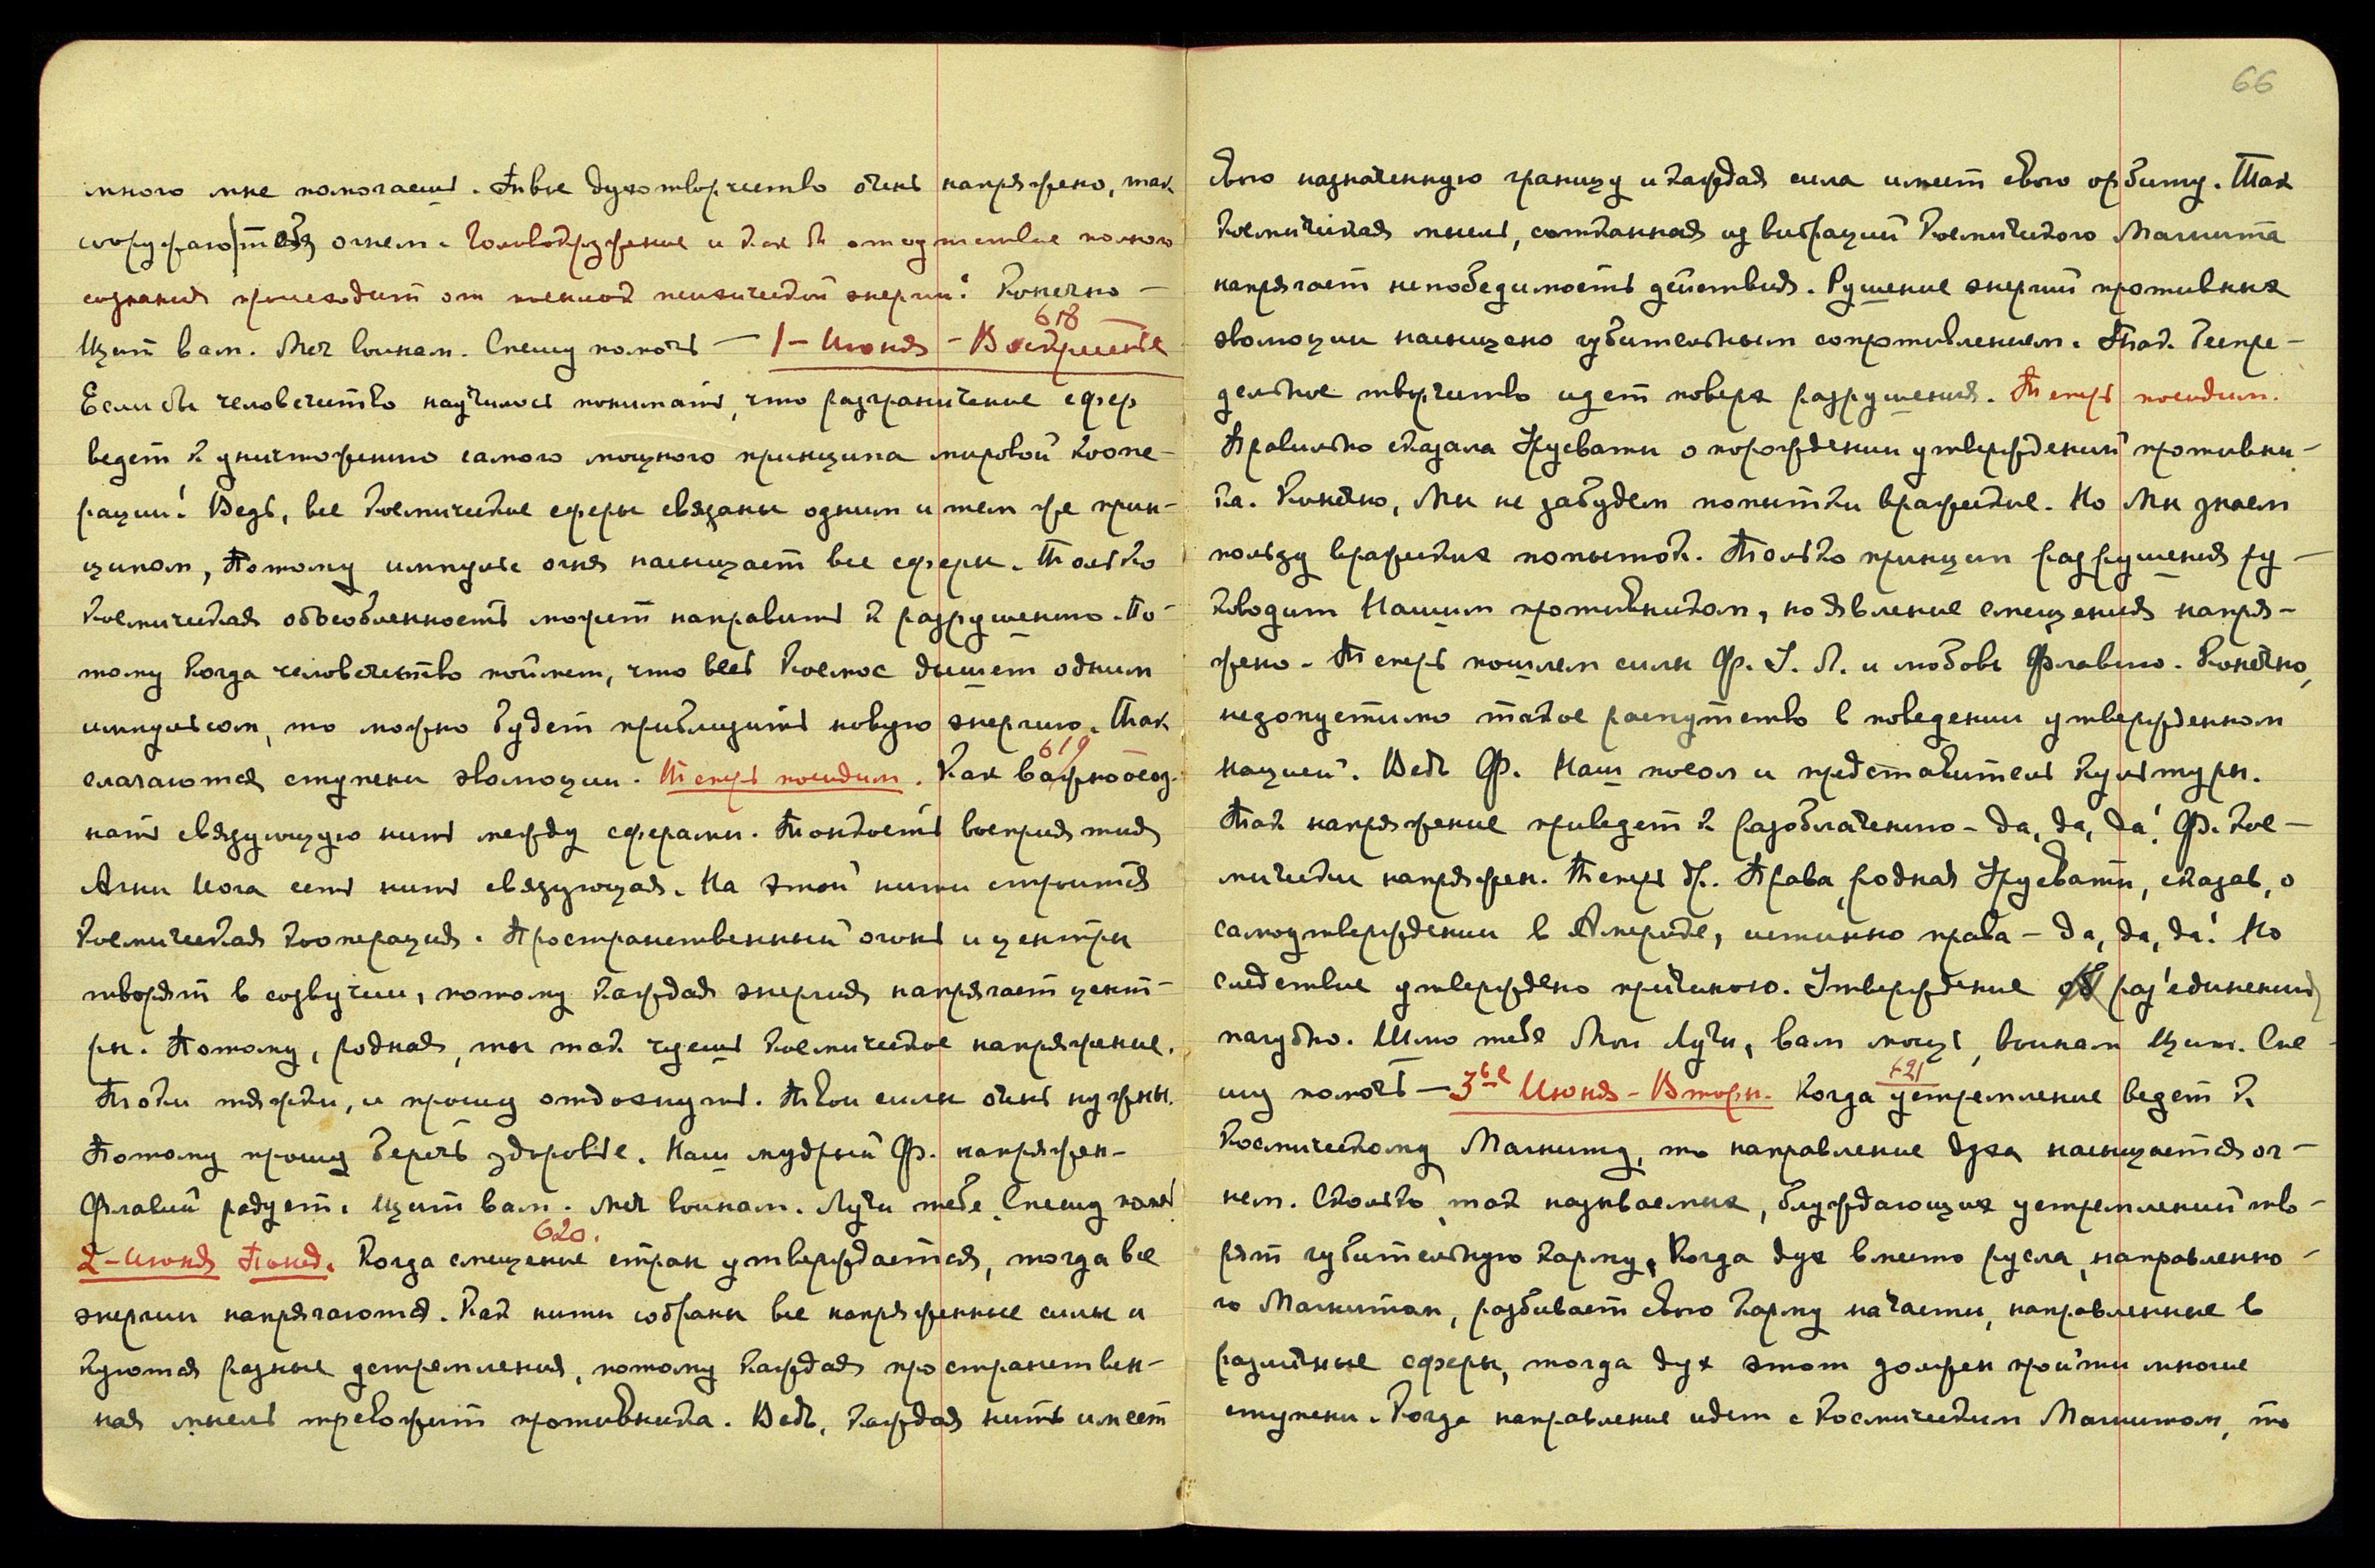 много мне помогаешь. Твое духотворчество очень напряжено, так
сооружаются огнем. Головокружение и как бы отсутствие полного
сознания происходит от посылок психической энергии. Конечно —
Щит вам. Меч воинам. Спешу помочь — 1 – Июня – Воскресенье
618
Если бы человечество научилось понимать, что разграничение сфер
ведет к уничтожению самого мощного принципа мировой коопе-
рации! Ведь, все космические сферы связаны одним и тем же прин-
ципом, Потому импульс огня насыщает все сферы. Только
космическая обособленность может направить к разрушению. По-
тому когда человечество поймет, что весь Космос дышет одним
импульсом, то можно будет приблизить новую энергию. Так
слагаются ступени эволюции. Теперь посидим. Как важно осоз-
619
нать связующую нить между сферами. Тонкость восприятия
Агни Йога есть нить связующая. На этой нити строится
космическая кооперация. Пространственный огонь и центры
творят в созвучии, потому каждая энергия напрягает цент-
ры. Потому, родная, ты так чуешь космическое напряжение.
Токи тяжки, и прошу отдохнуть. Твои силы очень нужны.
Потому прошу беречь здоровье. Наш мудрый Ф. напряжен –
Флавий радует. Щит вам. Меч воинам. Лучи тебе. Спешу помочь
620.
2 – Июня Понед. Когда смещение стран утверждается, тогда все
энергии напрягаются. Как нити собраны все напряженные силы и
куются разные устремления, потому каждая пространствен-
ная мысль тревожит противника. Ведь, каждая нить имеет
66
свою назначенную границу и каждая сила имеет свою орбиту. Так
космическая мысль, сотканная из вибраций Космического Магнита
напрягает непобедимость действия. Рушение энергий противных
эволюции насыщено губительным сопротивлением. Так беспре-
дельное творчество идет поверх разрушения. Теперь посидим.
Правильно сказала Урусвати о порождении утверждений противни-
ка. Конечно, Мы не забудем попытки вражеские. Но Мы знаем
пользу вражеских попыток. Только принцип разрушения ру-
ководит Нашим противником, но явление смещения напря-
жено. Теперь пошлем силы Ф. У. Л. и любовь Флавию. Конечно,
недопустимо такое распутство в поведении утвержденном
нацией. Ведь Ф. Наш посол и представитель культуры.
Так напряжение приведет к разоблачению – да, да, да! Ф. кос-
мически напряжен. Теперь др. Права, родная Урусвати, сказав, о
самоутверждении в Америке, истинно права – да, да, да! Но
следствие утверждено причиною. Утверждение раз'единения
пагубно. Шлю тебе Мои Лучи, вам мощь, воинам Щит. Спе-
шу помочь — 3ье Июня – Вторн. Когда устремление ведет к
621
Космическому Магниту, то направление духа насыщается ог-
нем. Сколько, так называемых, блуждающих устремлений тво-
рят губительную карму. Когда дух вместо русла, направленно-
го Магнитом, разбивает свою карму на части, направленные в
различные сферы, тогда дух этот должен пройти многие
ступени. Когда направление идет с Космическим Магнитом, то